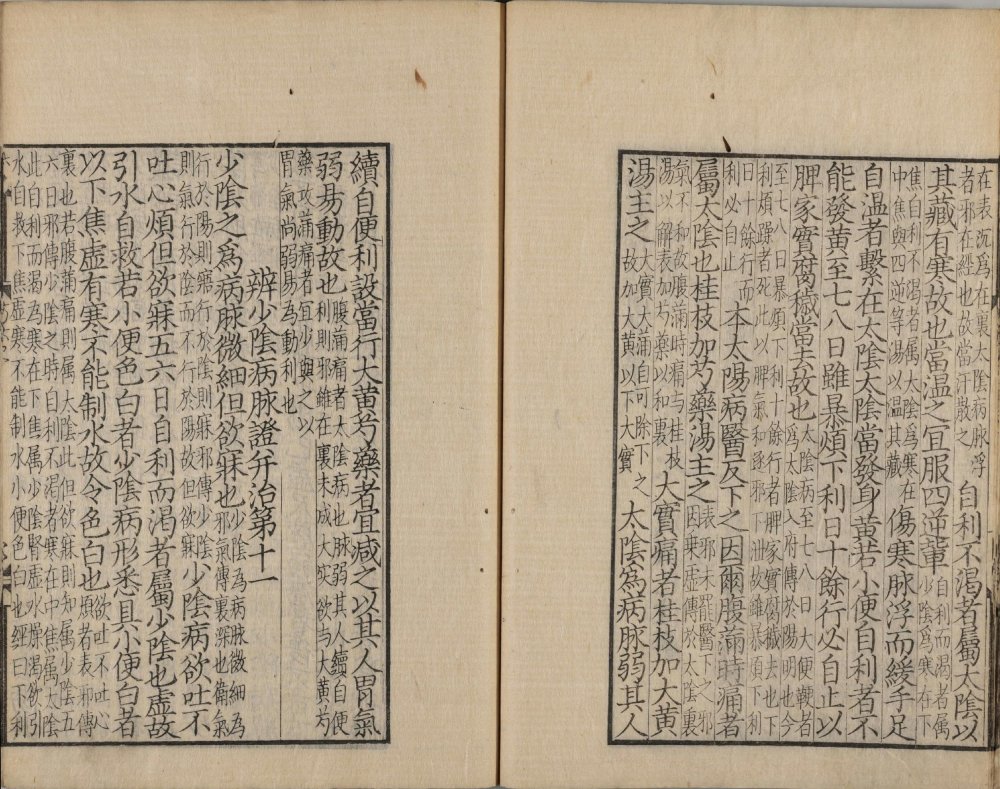 在表沉爲在裏太陰病浮
者邪在經也故當汗散之
自利不渴者屬太陰以
其藏有寒故也當温之宜服四逆輩
自利而渴者属
少陰爲寒在下
焦自利不渴者属太陰爲寒在
中焦與四逆等湯以温其藏
傷寒脉浮而緩手足
自温者繫在太陰太陰當發身黄若小便自利者不
能發黄至七八日雖暴煩下利日十餘行必自止以
脾家實腐穢當去故也
太陰病至七八日大便鞕者
爲太陰入府傳於陽明也今
至七八日暴煩下利十餘行者脾家實腐穢去也下
利煩躁者死此以脾氣和逐邪下泄故雖暴煩下利
日十餘行而
利必自止
本太陽病醫反下之因爾腹滿時痛者
屬太陰也桂枝加芍藥湯主之
表邪未罷醫下之邪
因乗虛傳於太陰裏
氣不和故腹滿時痛与桂枝
湯以解表加芍藥以和裏
大實痛者桂枝加大黄
湯主之
大實大滿自可除下之
故加大黄以下大實
太陰爲病脉弱其人
續自便利設當行大黄芍藥者宜减之以其人胃氣
弱易動故也
腹滿痛者太陰病也脉弱其人續自便
利則邪雖在裏未成大实欲与大黄芍
藥攻滿痛者宜少與之以
胃氣尚弱易為動利也
辨少陰病脉證并治第十一
少陰之爲病脉微細但欲寐也
少陰為病脉微細為
邪氣傳裏深也衛氣
行於陽則寤行於陰則寐邪傳少陰
則氣行於陰而不行於陽故但欲寐
少陰病欲吐不
吐心煩但欲寐五六日自利而渴者屬少陰也虛故
引水自救若小便色白者少陰病形悉具小便白者
以下焦虛有寒不能制水故令色白也
欲吐不吐心
煩者表邪傳
裏也若腹滿痛則属太陰此但欲寐則知属少陰五
六日邪傳少陰之時自利不渴者寒在中焦属太陰
此自利而渴為寒在下焦属少陰腎虚水燥渴欲引
水自救下焦虚寒不能制水小便色白也經曰下利